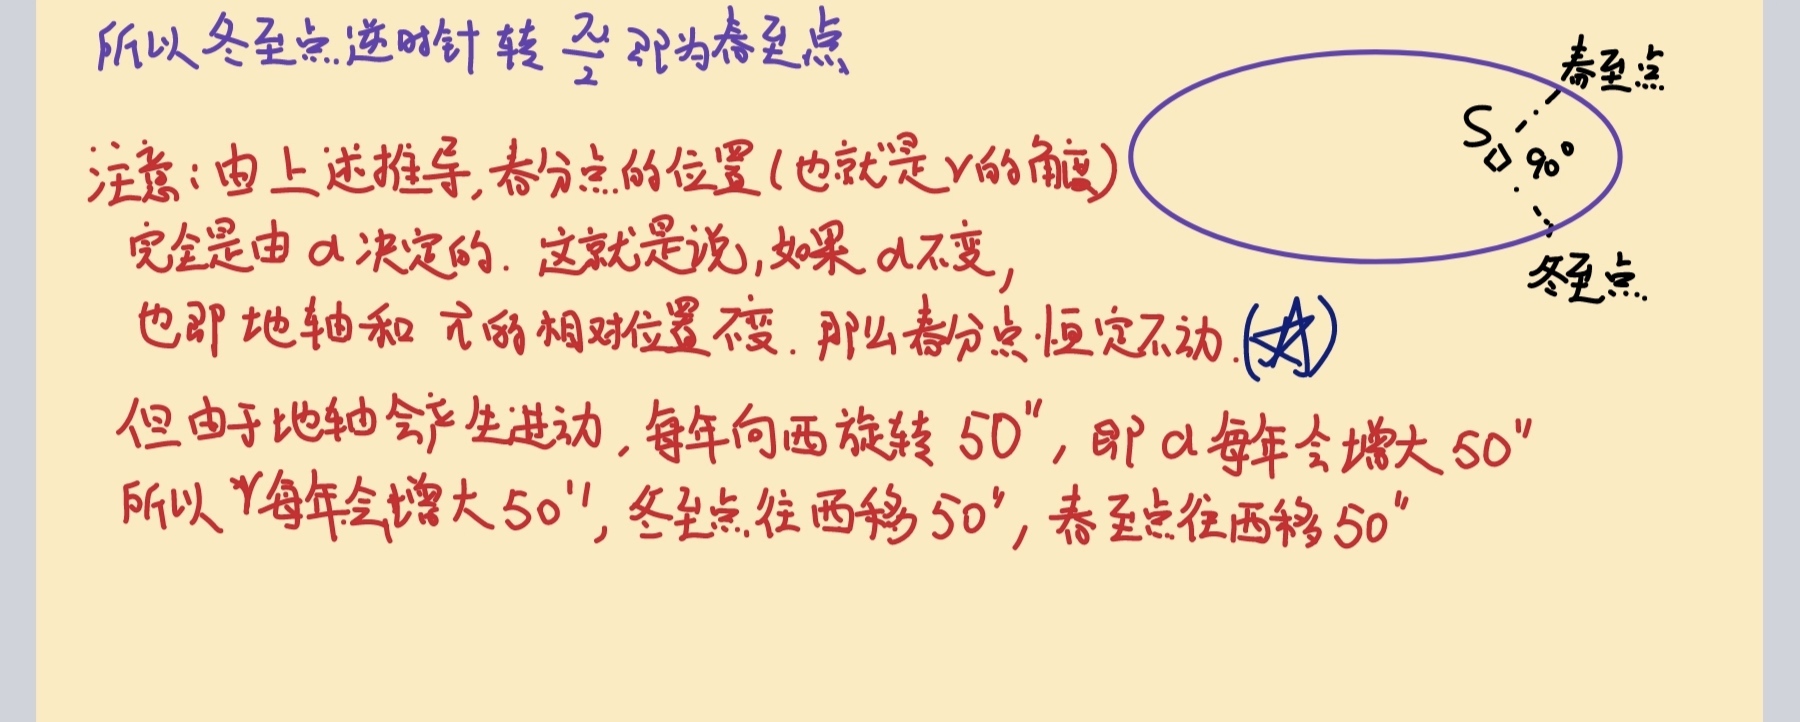 所以冬至点逆时针转 π/2 即为春至点
春至点
S
90°
冬至点
注意:由上述推导,春分点的位置(也就是γ的角度)
完全是由α决定的. 这就是说,如果α不变,
也即地轴和 π的相对位置不变. 那么春分点恒定不动.(☆)
但由于地轴会产生进动,每年向西旋转 50",即α每年会增大50"
所以γ每年会增大50",冬至点往西移50",春至点往西移50"